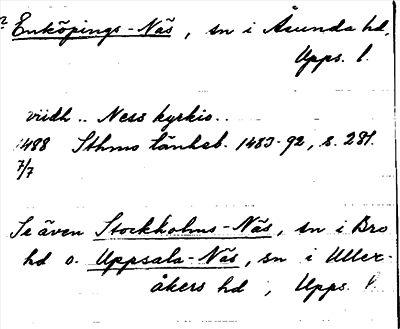 ? Enköpings-Näs, sn i Åsunda hd,
Upps. l.
viidh .. Ness kyrkio..
1488 Sthms tänkeb. 1483-92, s. 281.
7/7
Se även Stockholms-Näs, sn i Bro
hd o. Uppsala-Näs, sn i Uller-
åkers hd, Upps. l.